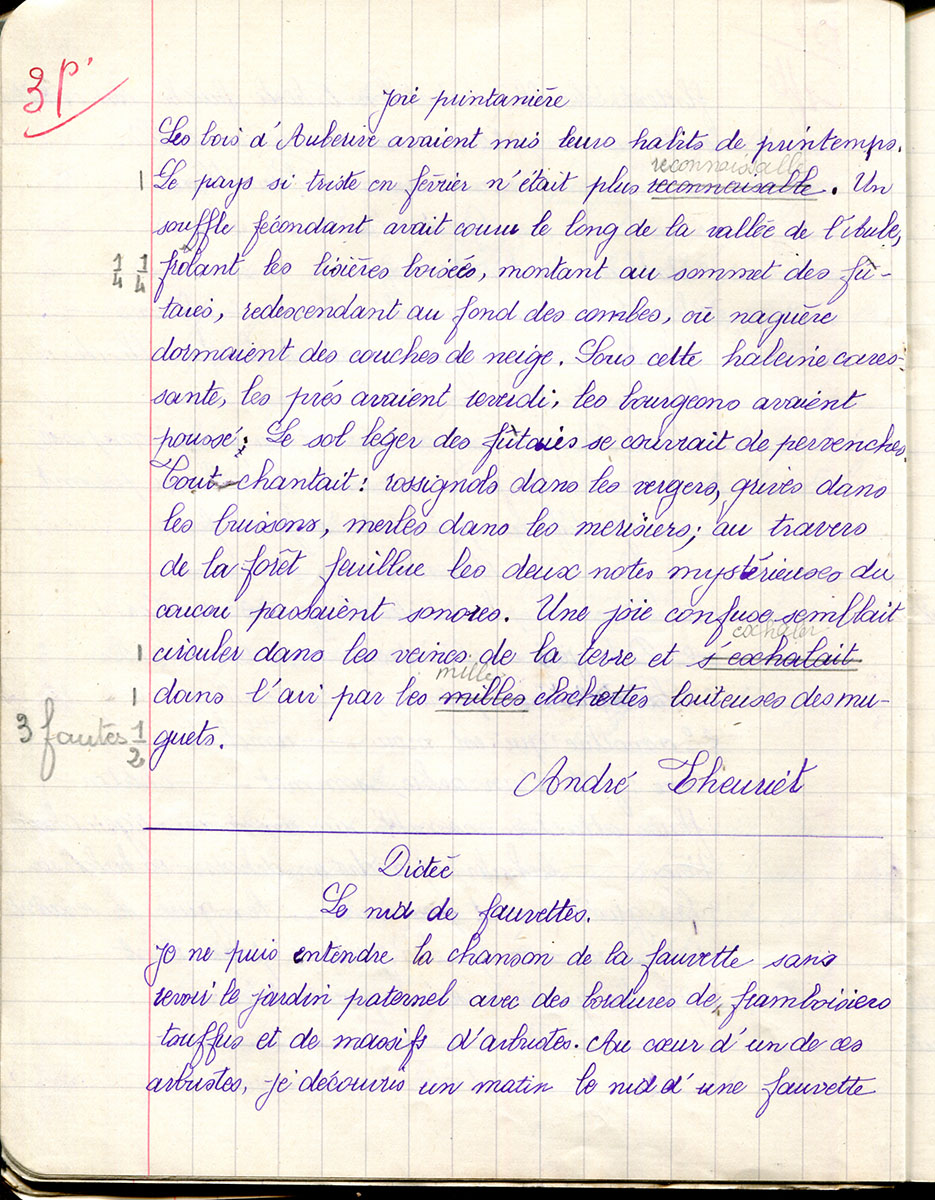 3 p'
Joie printanière
Les bois d'Auberive avaient mis leurs habits de printemps.
reconnaissable
1 Le pays si triste en février n'était plus reconnaisable. Un
souffle fécondant avait couru le long de la vallée de l'Aube,
1/4 1/4 frôlant les lisières boisées, montant au sommet des fu-
taies, redescendant au fond des combes, où naguère
dormaient des couches de neige. Sous cette haleine cares-
sante, les prés avaient reverdi, les bourgeons avaient
poussé; Le sol léger des futaies se couvrait de pervenches.
Tout chantait: rossignols dans les vergers, grives dans
les buissons, merles dans les merisiers; au travers
de la forêt feuillue les deux notes mystérieuses du
coucou passaient sonores. Une joie confuse semblait
exhaler
1 circuler dans les veines de la terre et s'exhalait
mille
1 dans l'air par les milles clochettes laiteuses des mu-
3 fautes 1/2 guets.
André Theuriet
Dictée
Le nid de fauvettes.
Je ne puis entendre la chanson de la fauvette sans
revoir le jardin paternel avec des bordures de framboisiers
touffus et de massifs d'arbustes. Au cœur d'un de ces
arbustes, je découvris un matin le nid d'une fauvette